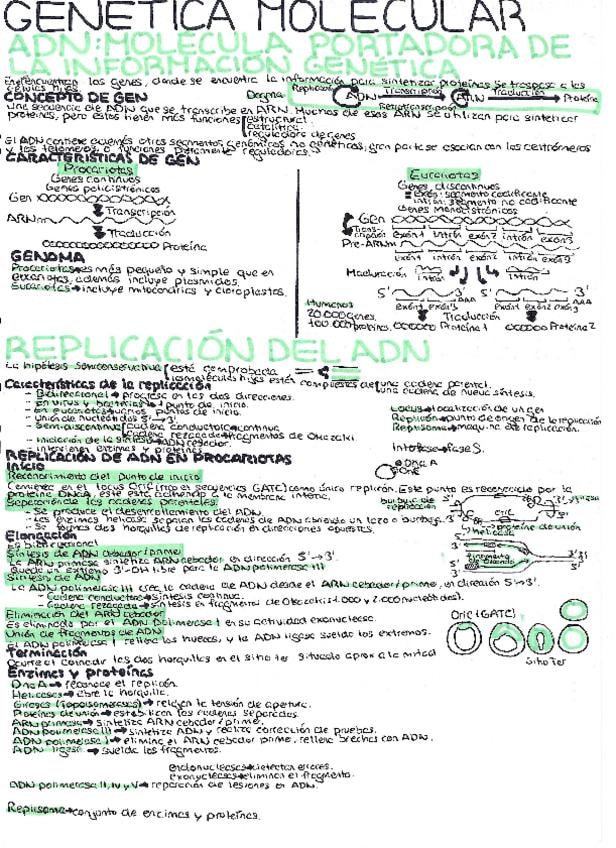 GENÉTICA MOLECULAR
ADN: MOLÉCULA PORTADORA DE
LA INFORMACIÓN GENÉTICA
En él encuentran los genes, donde se encuentra la información para sintetizar proteínas. Se traspasa a las
células hijas.
Replicación
CONCEPTO DE GEN
Dogma
ADN Transcripción ARN Traducción Proteína
Retrotranscripción
Una secuencia de ADN que se transcribe en ARN. Muchos de esos ARN se utilizan para sintetizar
proteínas, pero estos tienen más funciones
estructural
catalítica
reguladora de genes
El ADN contiene además otros segmentos genómicos no genéticos, gran parte se asocian con los centrómeros
y los telómeros, o funciones puramente reguladoras.
CARACTERÍSTICAS DE GEN
Procariotas
Genes continuos
Genes policistrónicos
Gen
Transcripción
ARNm
Traducción
Proteína
Eucariotas
Genes discontinuos
exón: segmento codificante
intrón: segmento no codificante
Genes monocistrónicos
Gen
Transcripción
exón1 intrón exón2 intrón exón3
Pre-ARNm
exón1 intrón exón2 intrón exón3
Maduración intrón intrón
5' 3' 5' 3'
AAA AAA
Traducción
Proteína 1 Proteína 2
Humanos
20.000 genes,
100.000 proteínas.
GENOMA
Procariotas→es más pequeño y simple que en
eucariotas, además incluye plásmidos.
Eucariotas→incluye mitocondrias y cloroplastos.
REPLICACIÓN DEL ADN
La hipótesis semiconservativa
está comprobada
las moléculas hijas están compuestas de
una cadena parental.
una cadena de nueva síntesis.
Características de la replicación
- Bidireccional→progresa en las dos direcciones.
- En virus y bacterias→1 punto de inicio.
- En eucariotas→varios puntos de inicio.
- Unión de nucleótidos 5'→3'
- Semidiscontinua
cadena conductora→continua
cadena rezagada→fragmentos de Okazaki.
- Iniciación de la síntesis→ADN cebador.
- Intervienen enzimas y proteínas.
Locus→localización de un gen
Replicón→punto de origen de la replicación
Replisoma→maquinaria replicación.
Interfase→fase S.
REPLICACIÓN DE ADN EN PROCARIOTAS
Inicio
Reconocimiento del punto de inicio
Comienza en el locus OriC (rico en secuencias GATC) como único replicón. Este punto es reconocido por la
proteína DNCA, este está adherido a la membrana interna.
Separación de las cadenas parentales
- Se produce el desenrollamiento del ADN.
- Las enzimas helicasa separan las cadenas de ADN creando un lazo o burbuja.
- Se forman dos horquillas de replicación en direcciones opuestas.
DNC A
OriC
burbuja de
replicación
OriC
proteína de unión
helicasa
Elongación
Es bidireccional
Síntesis de ADN cebador/prime
La ARN primasa sintetiza ARN cebador en dirección 5'→3'.
Queda un extremo 3'-OH libre para la ADN polimerasa III
Síntesis de ADN
La ADN polimerasa III crea la cadena de ADN desde el ARN cebador/prime, en dirección 5'→3'.
- Cadena conductora→síntesis continua.
- Cadena rezagada→síntesis en fragmentos de Okazaki (1.000 y 2.000 nucleótidos).
Eliminación del ARN cebador
Es eliminado por el ADN Polimerasa I en su actividad exonucleasa.
Unión de fragmentos de ADN
El ADN polimerasa I rellena los huecos, y la ADN ligasa suelda los extremos.
fragmento
Okazaki
OriC (GATC)
Sitio Ter
Terminación
Ocurre al coincidir las dos horquillas en el sitio ter situado aprox a la mitad
Enzimas y proteínas
DncA→reconoce el replicón.
Helicasas→abre la horquilla.
Girasas (topoisomerasas)→relajan la tensión de apertura.
Proteínas de unión→estabilizan las cadenas separadas.
ARN primasa→sintetiza ARN cebador/prime.
ADN polimerasa III→sintetiza ADN y realiza corrección de pruebas.
ADN polimerasa I→elimina el ARN cebador prime, rellena brechas con ADN.
ADN ligasa→suelda los fragmentos.
endonucleasas→detectan errores.
exonucleasas→eliminan el fragmento.
ADN polimerasa II, IV y V→reparación de lesiones en ADN.
Replisoma→conjunto de encimas y proteínas.